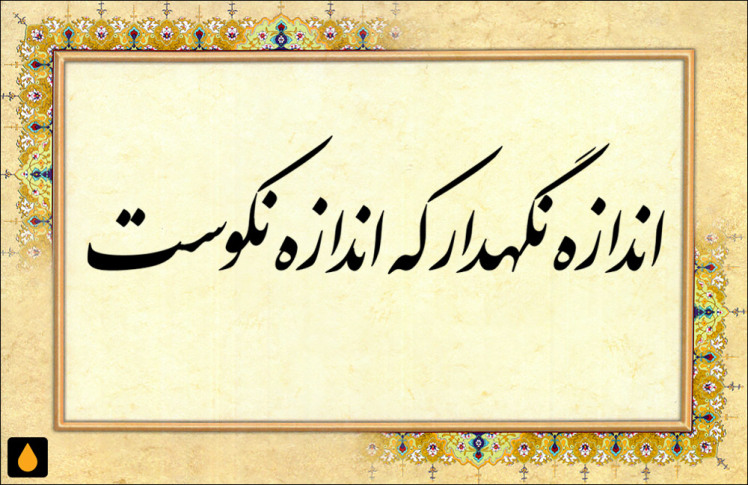 اندازه نگهدار که اندازه نکوست